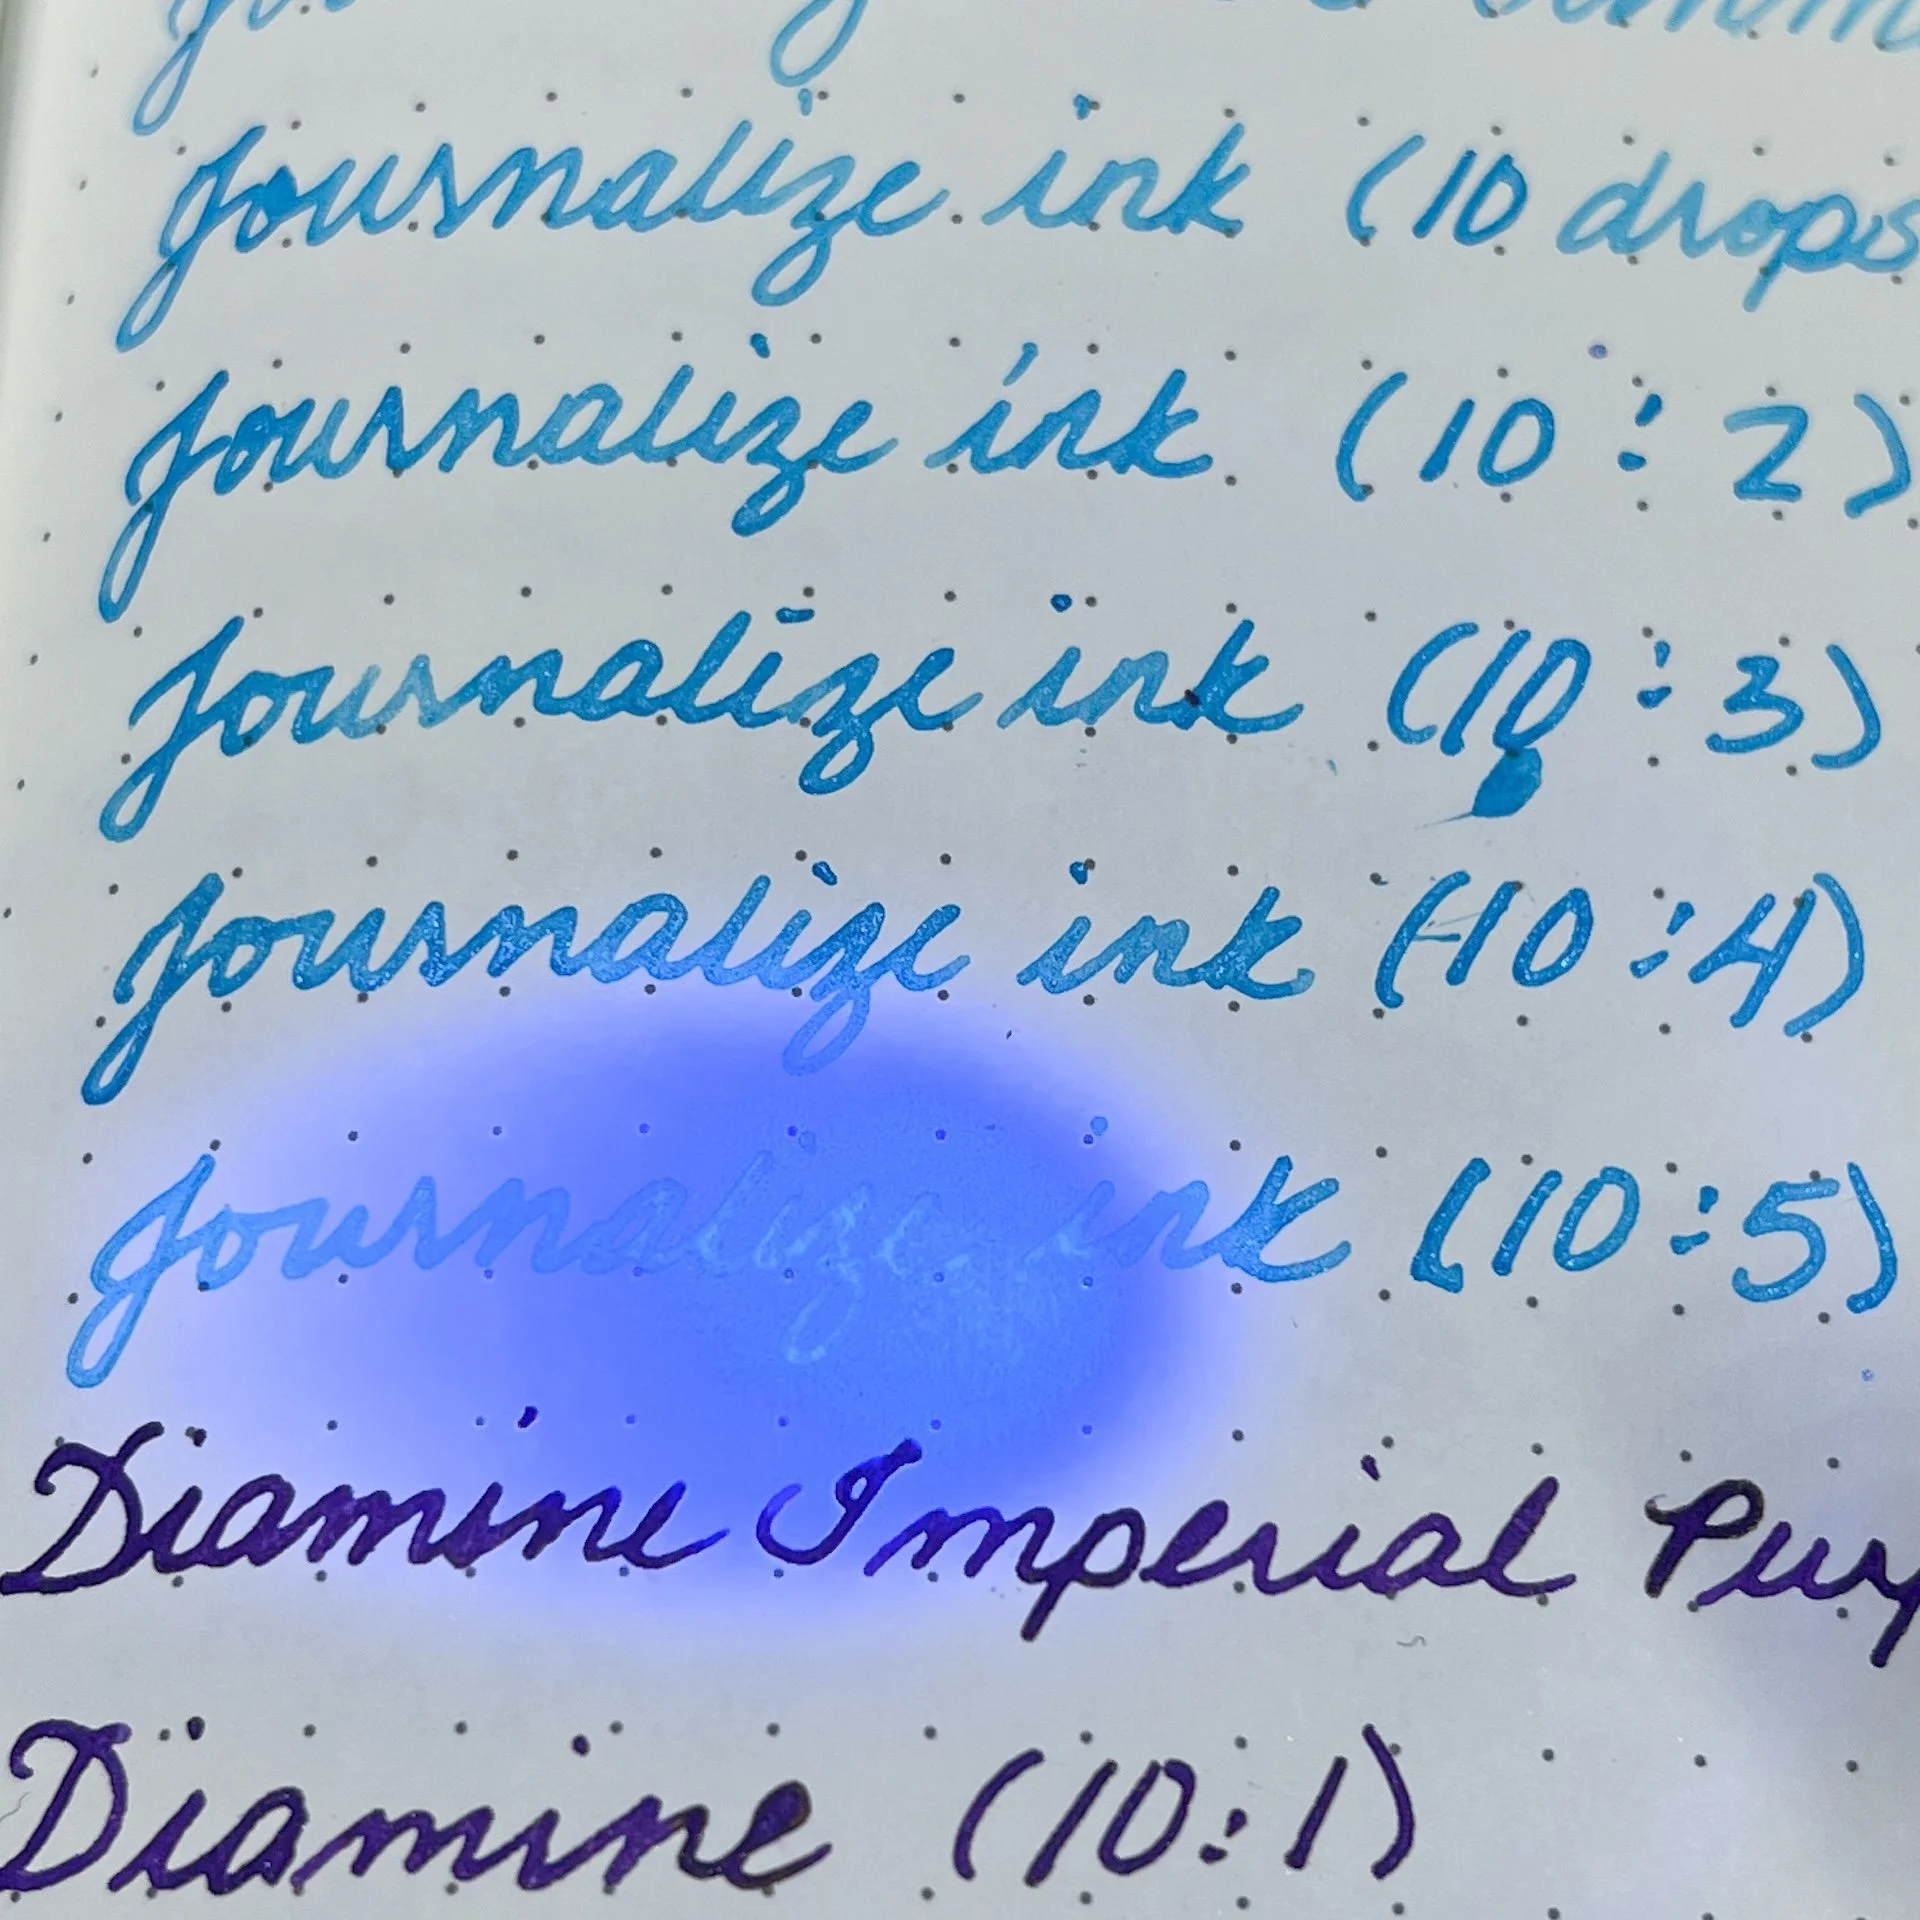 journalize ink (10 drops
journalize ink (10 : 2)
journalize ink (10 : 3)
journalize ink (10 : 4)
journalize ink (10 : 5)
Diamine Imperial
Diamine (10:1)